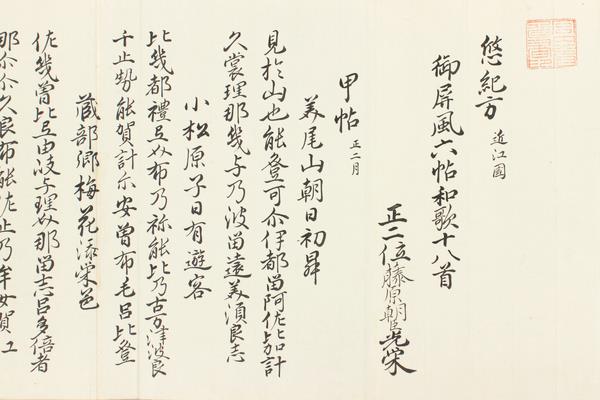 悠紀方 近江国
御屏風六帖和歌十八首
正二位藤原朝臣光栄
甲帖 正二月
美尾山朝日初昇
見於山也能登可尓伊都留阿佐比加計
久裳理那幾与乃波留遠美須良志
小松原子日有遊客
比幾都禮布乃祢能比乃古万津波良
千止勢能賀計尓安曽布毛呂比登
蔵部郷梅花添栄色
佐幾曽比由与理那留志呂多倍者
那尓尓久良布能佐止乃牟女賀